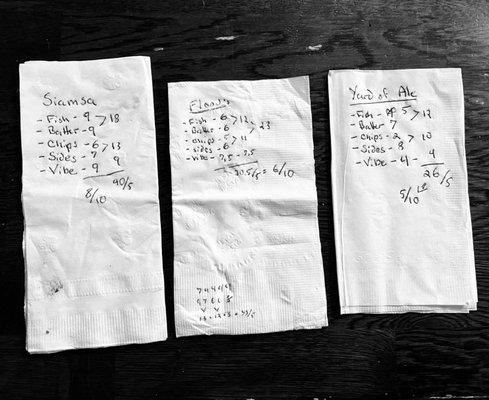 Siamsa
- Fish - 9 > 18
- Batter - 9
- Chips - 6 > 13
- Sides - 7
- Vibe - 9 9
40/5
8/10
Flood's
- Fish - 6 > 12
- Batter - 6 > 23
- Chips - 5 > 11
- Sides - 6
- Vibe - 7.5 - 7.5
30.5/5 = 6/10
Yard of Ale
- Fish - 5 > 12
- Batter 7
- Chips - 2 > 10
- Sides - 8
- Vibe - 4 - 4
26/5
5/10